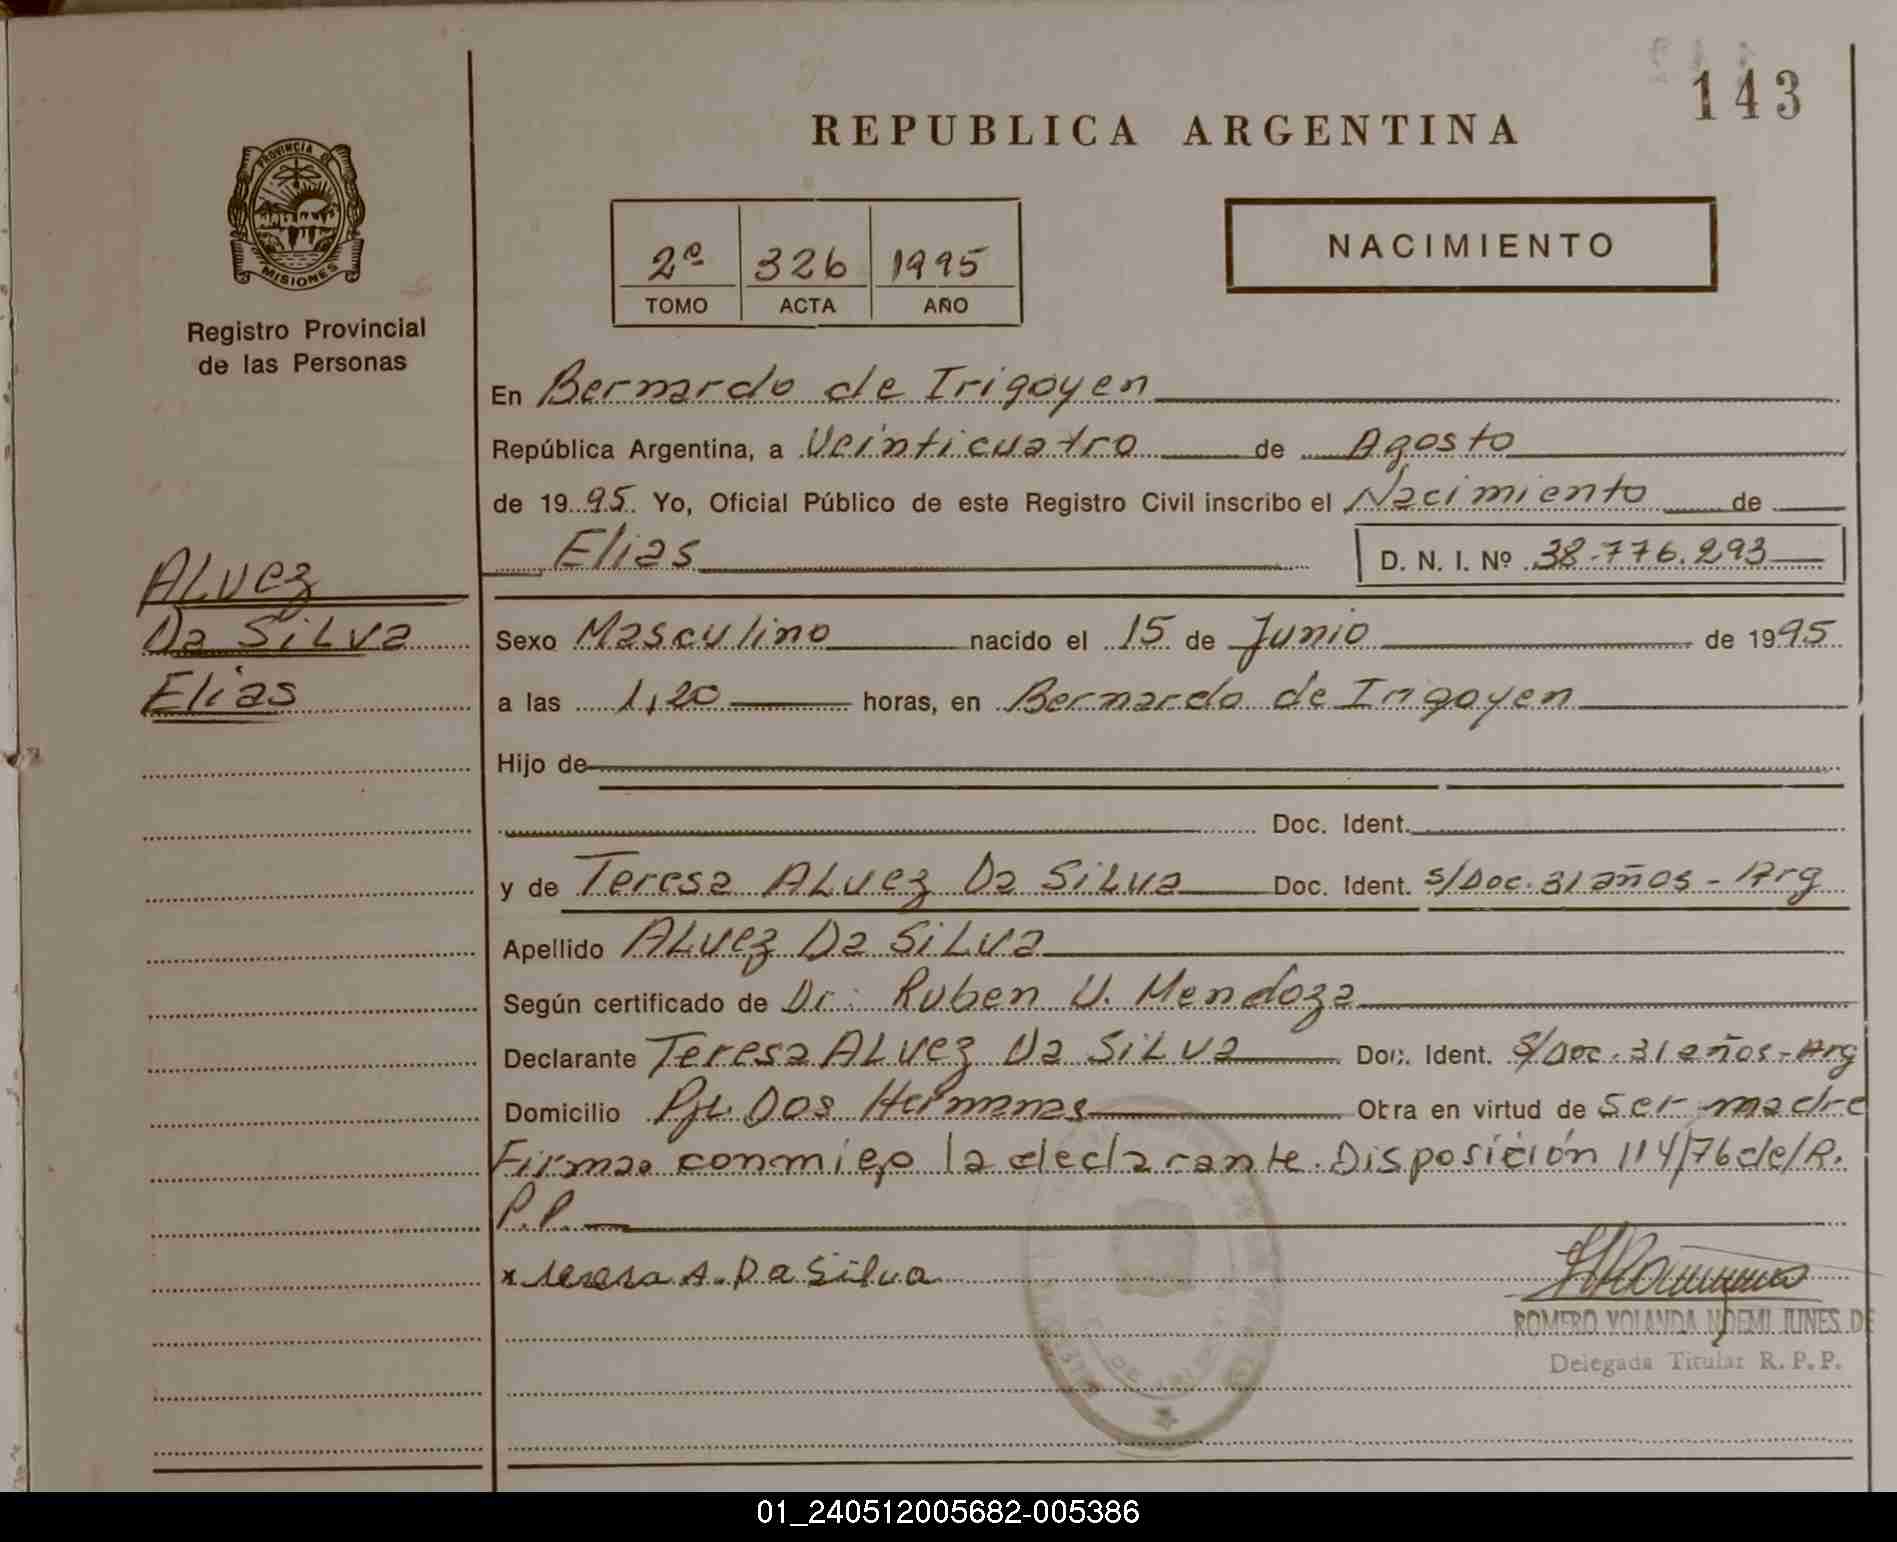 143
REPUBLICA ARGENTINA
PROVINCIA DE
MISIONES
Registro Provincial
de las Personas
2º 326 1995
TOMO ACTA AÑO
NACIMIENTO
En Bernardo de Irigoyen
República Argentina, a Veinticuatro de Agosto
de 1995 Yo, Oficial Público de este Registro Civil inscribo el Nacimiento de
Elias D. N. I. Nº 38.776.293
ALvez
Da SiLva
Elias
Sexo Masculino nacido el 15 de Junio de 1995
a las 1,20 horas, en Bernardo de Irigoyen
Hijo de
Doc. Ident.
y de Teresa ALvez Da SiLva Doc. Ident. s/Doc. 31 años - Arg
Apellido ALvez Da SiLva
Según certificado de Dr: Ruben U. Mendoza
Declarante Teresa ALvez Da SiLva Doc. Ident. S/Doc. 31 años - Arg
Domicilio Pje Dos Hermanas Obra en virtud de ser madre
Firma conmigo la declarante. Disposición 114/76 del R.
P.P.
x teresa A. Da Silva
ROMERO YOLANDA NOEMI IUNES DE
Delegada Titular R. P. P.
01_240512005682-005386